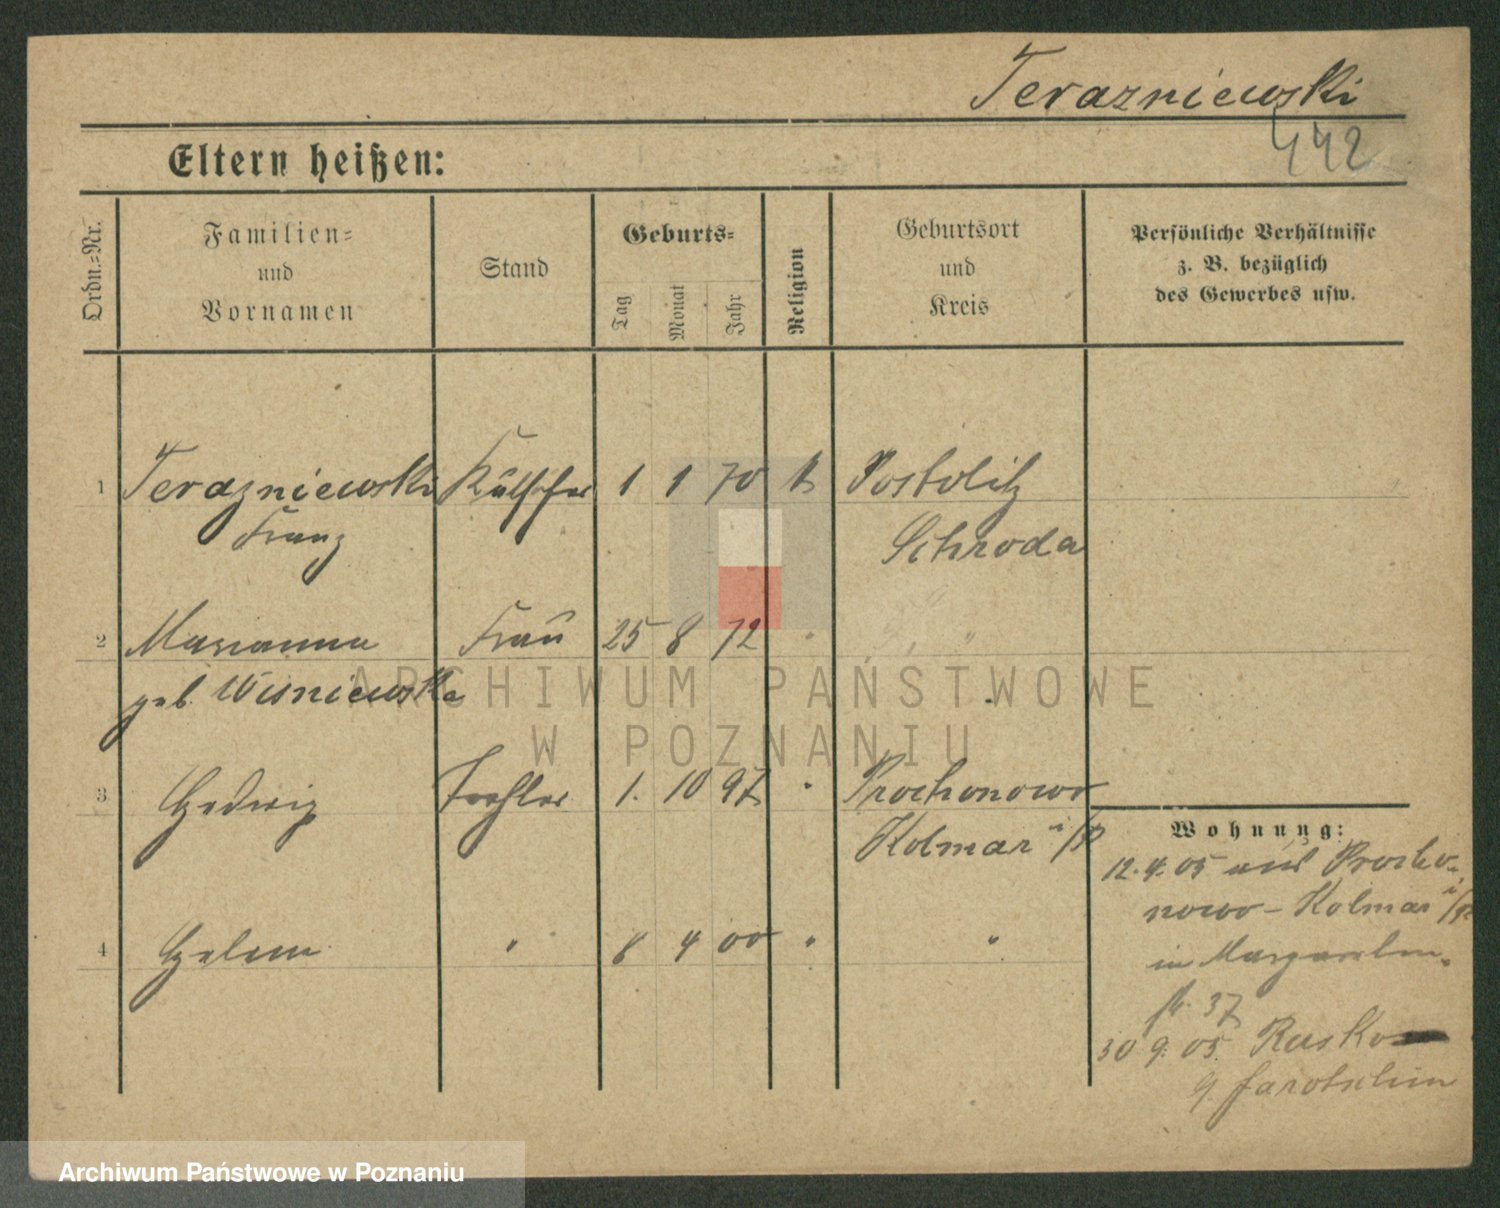 Terazniewski
442
Eltern heißen:
Ordn.-Nr.
Familien-
und
Vornamen
Stand
Geburts-
Tag
Monat
Jahr
Religion
Geburtsort
und
Kreis
Persönliche Verhältnisse
z. B. bezüglich
des Gewerbes usw.
1 Terazniewski 1 1 70 k Postolitz
Franz Schroda
2 Marianna Frau 25 8 72 " "
geb. Wisniewska
3 Hedwig Tochter 1. 10 97 " Prochonowo
Kolmar i/P
4 Helene " 8 4 00 " "
Wohnung:
12.4.05 aus Procho-
nowo - Kolmar i/P
in Margareten-
str. 37
30 9. 05 Rusko
Jarotschin
ARCHIWUM PAŃSTWOWE
W POZNANIU
Archiwum Państwowe w Poznaniu